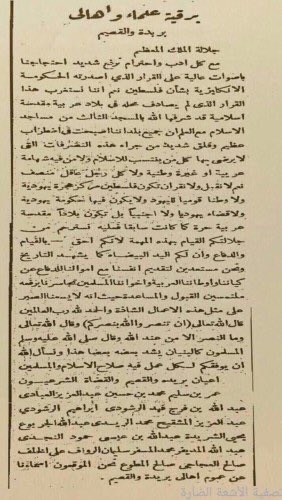 برقية علماء واهالى
بريدة والقصيم
جلالة الملك المعظم
مع كل ادب واحترام نرفع شديد احتجاجنا
باصوات عالية على القرار الذى اصدرته الحكومة
الانكليزية بشأن فلسطين ثم اننا نستغرب هذا
القرار الذى لم يصادف محله فى بلاد عربية مقدسة
اسلامية قد شرفها الله بالمسجد الثالث من مساجد
الاسلام مع العلم ان جميع بلداننا اصبحت فى اضطراب
عظيم وقلق شديد من جراء هذه التصرفات التى
لا يرضى بها كل من ينتسب للاسلام ولا من فيه شهامة
عربية او غيرة وطنية ولا كل رجل عاقل منصف
ثم لا نقبل ولا نقر ان تكون فلسطين مركز هجرة يهودية
ولا وطنا قوميا لليهود ولا يكون فيها حكومة يهودية
ولا قضاء يهوديا ولا اجنبيا بل تكون بلادا مقدسة
عربية حرة كما كانت سابقا فعليه نسترحم من
جلالتكم القيام بهذه المهمة لانكم احق بالقيام
والدفاع وان لكم اليد البيضاء كما يشهد التاريخ
ونحن مستعدين لتقديم انفسنا مع اموالنا للدفاع عن
كياننا واوطاننا العربية واخواننا المسلمين بحماسنا نرفعه
ملتمسين القبول والمساعدة حيث انه لا يسعنا الصبر
على مثل هذه الاعمال الشاذة والحمد لله رب العالمين
قال الله تعالى (ان تنصروا الله ينصركم) وقال الله تعالى
وما النصر الا من عند الله وقال صلى الله عليه وسلم
المسلمون كالبنيان يشد بعضه بعضا هذا ونسأل الله
ان يوفقكم لكل عمل فيه صلاح الاسلام والمسلمين
اعيان بريده والقصيم والقضاة الشرعيون
عمر بن سليم محمد بن حسين عبد العزيز العبادى
عبد الله بن فرج فهد الرشودى ابراهيم الرشودى
عبد العزيز المشيقح محمد الربدى عبد الله الجربوع
يحيى الشريدة عبد الله بن عيسى حمود النجيدى
عبد الله المديفر محمد المسفر سليمان الرواف على الخلف
صالح السحامى صالح المطوع نحن الموقعون اسماءنا
عن عموم اهالى بريده والقصيم